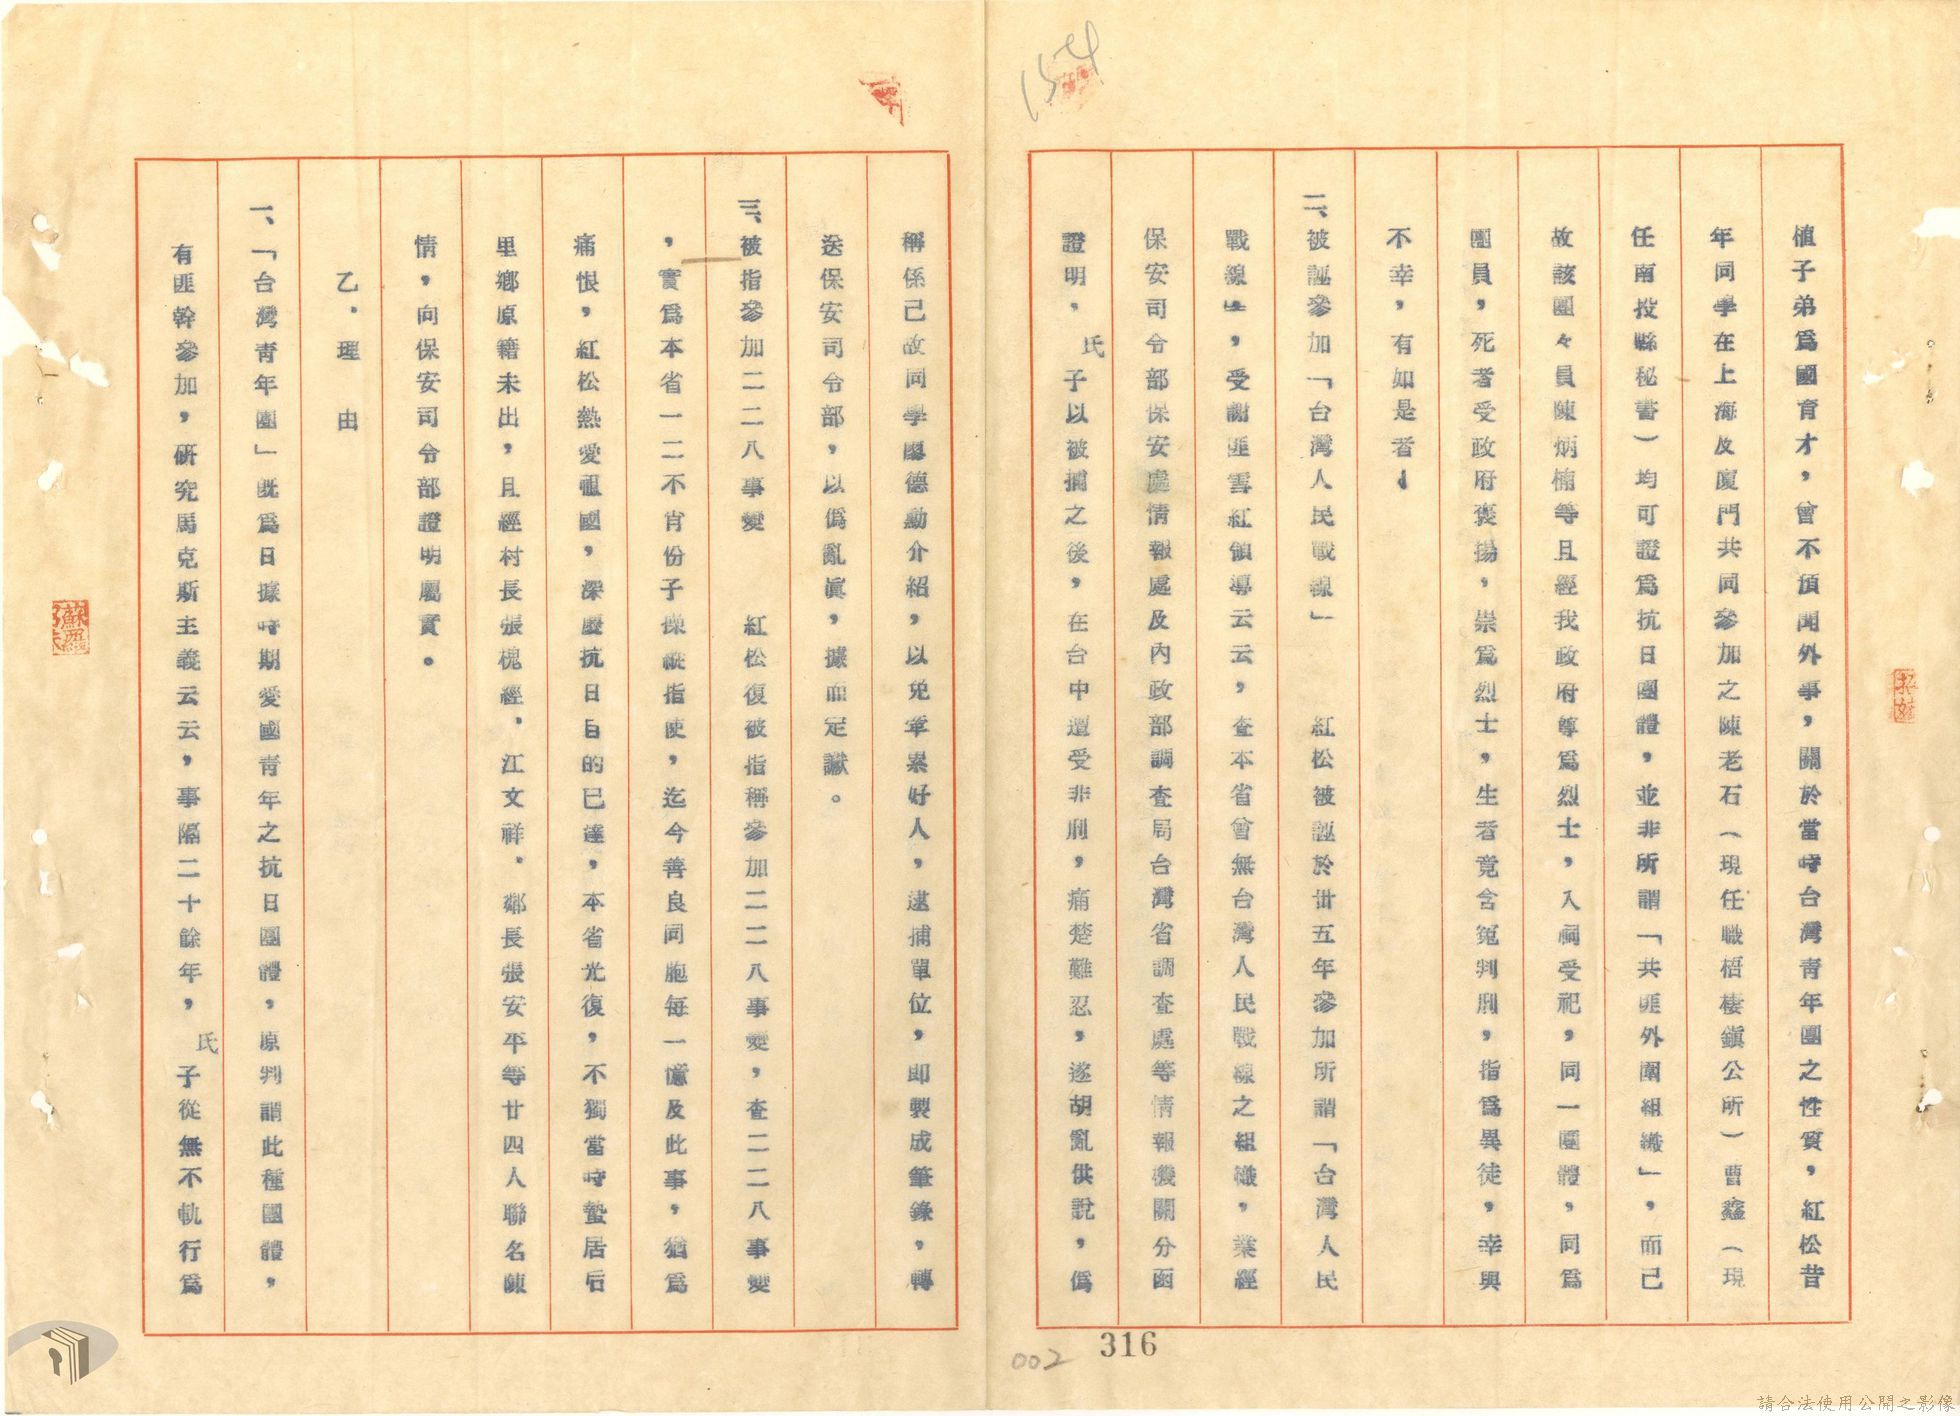 植子弟為國育才，曾不預聞外事，關於當時台灣青年團之性質，紅松昔
年同學在上海及廈門共同參加之陳老石（現任職梧棲鎮公所）曹鑫（現
任南投縣秘書）均可證為抗日團體，並非所謂「共匪外圍組織」，而已
故該團々員陳炳楠等且經我政府尊為烈士，入祠受祀，同一團體，同為
團員，死者受政府褒揚，崇為烈士，生者竟含冤判刑，指為異徒，幸與
不幸，有如是者！
二、被誣參加「台灣人民戰線」　紅松被誣於卅五年參加所謂「台灣人民
戰線」，受謝匪雪紅領導云云，查本省曾無台灣人民戰線之組織，業經
保安司令部保安處情報處及內政部調查局台灣省調查處等情報機關分函
證明，氏子以被捕之後，在台中遭受非刑，痛楚難忍，遂胡亂供說，偽
稱係己故同學廖德勳介紹，以免牽累好人，逮捕單位，即製成筆錄，轉
送保安司令部，以偽亂真，據而定讞。
三、被指參加二二八事變　紅松復被指稱參加二二八事變，查二二八事變
，實為本省一二不肖份子操縱指使，迄今善良同胞每一億及此事，猶為
痛恨，紅松熱愛祖國，深慶抗日目的已達，本省光復，不獨當時蟄居后
里鄉原籍未出，且經村長張槐經．江文祥．鄰長張安平等廿四人聯名陳
情，向保安司令部證明屬實。
乙．理　由
一、「台灣青年團」既為日據時期愛國青年之抗日團體，原判謂此種團體，
有匪幹參加，研究馬克斯主義云云，事隔二十餘年，氏子從無不軌行為
154
316
002
請合法使用公開之影像